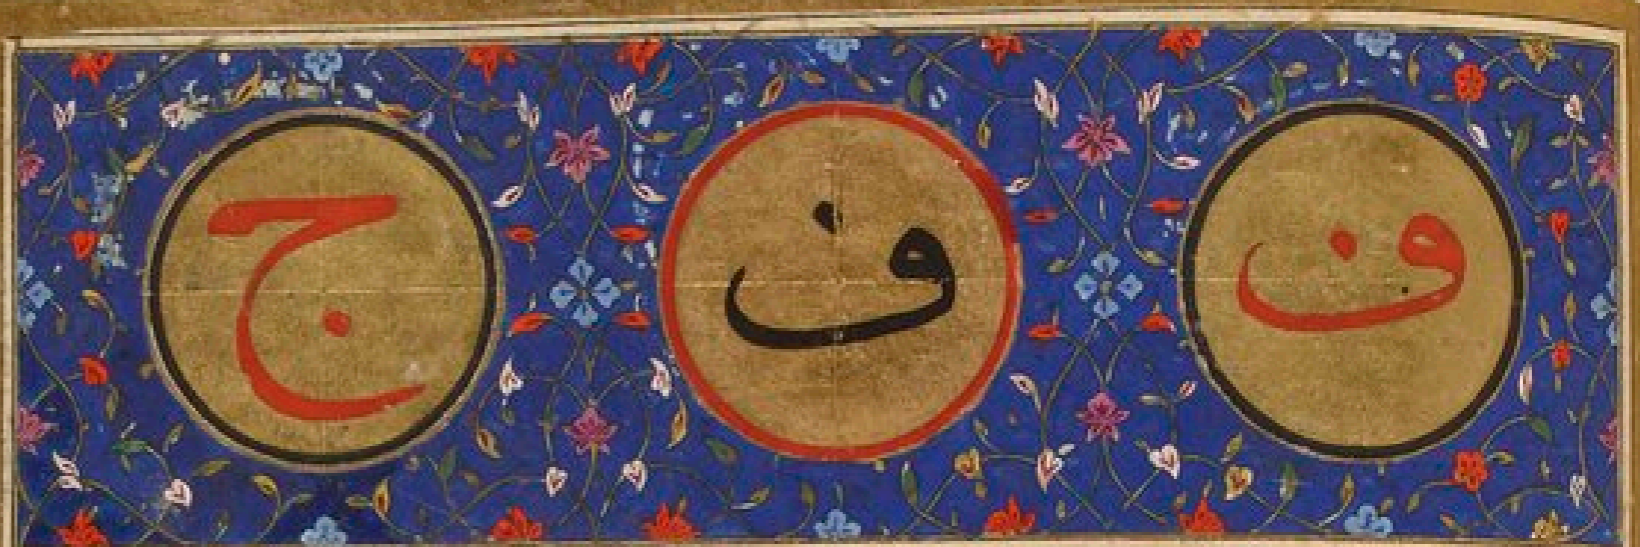 ف ف ج